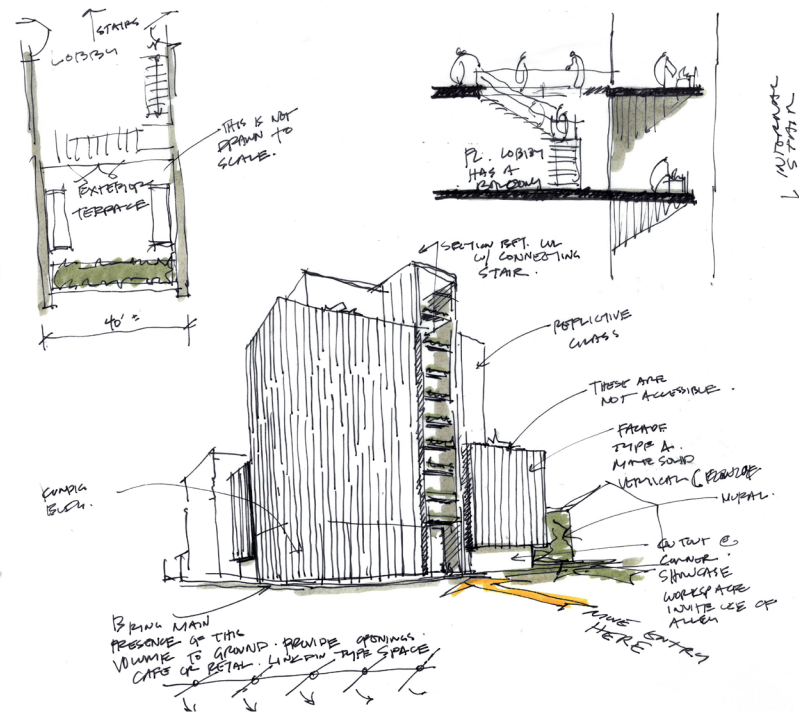 STAIRS
LOBBY
THIS IS NOT
DRAWN TO
SCALE.
EXTERIOR
TERRACE
40' ±
FL. LOBBY
HAS A
BALCONY
INTERNAL
STAIR
SECTION BET. LVL
W/ CONNECTING
STAIR.
REFLICTIVE
GLASS
THESE ARE
NOT ACCESSIBLE.
FACADE
TYPE A.
MAKE SOLID
VERTICAL
MURAL.
BLDG.
CUTOUT @
CORNER.
SHOWCASE
WORKSPACE
INVITE USE OF
ALLEY
MOVE ENTRY
HERE
BRING MAIN
PRESENCE OF THIS
VOLUME TO GROUND. PROVIDE OPENINGS.
CAFE OR RETAL. LINKDIN TYPE SPACE